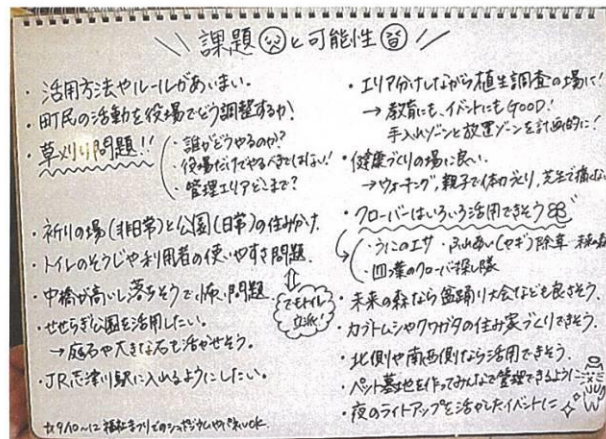 課題と可能性
・活用方法やルールがあいまい。
・町民の活動を役場でどう調整するか!
・草刈り問題!!
・誰がどうやるのか?
・役場だけでやるべきではない!
・管理エリアどこまで?
・祈りの場(非日常)と公園(日常)の住みわけ
・トイレのそうじや利用者の使いやすさ問題
でもトイレ立派!
・中橋が高いし落ちそうで怖い問題
・せせらぎ公園を活用したい。
→庭石や大きな石も活かせそう。
・JR志津川駅に入れるようにしたい。
☆9/10~12 福祉まつりでの
・エリア分けしながら植生調査の場に!
→教育にも、イベントにもGOOD!
手入れゾーンと放置ゾーンを計画的に!
・健康づくりの場に良い。
→ウォーキング、親子で体力づくり、芝生で痛くない
・クローバーはいろいろ活用できそう
・うにのエサ・ふれあい(ヤギ)除草
・四つ葉のクローバー探し隊
・未来の森なら盆踊り大会なども良さそう。
・カブトムシやクワガタの住み家づくりできそう。
・北側や南西側なら活用できそう。
・ペット墓地を作ってみんなで管理できるように
・夜のライトアップを活かしたイベントに